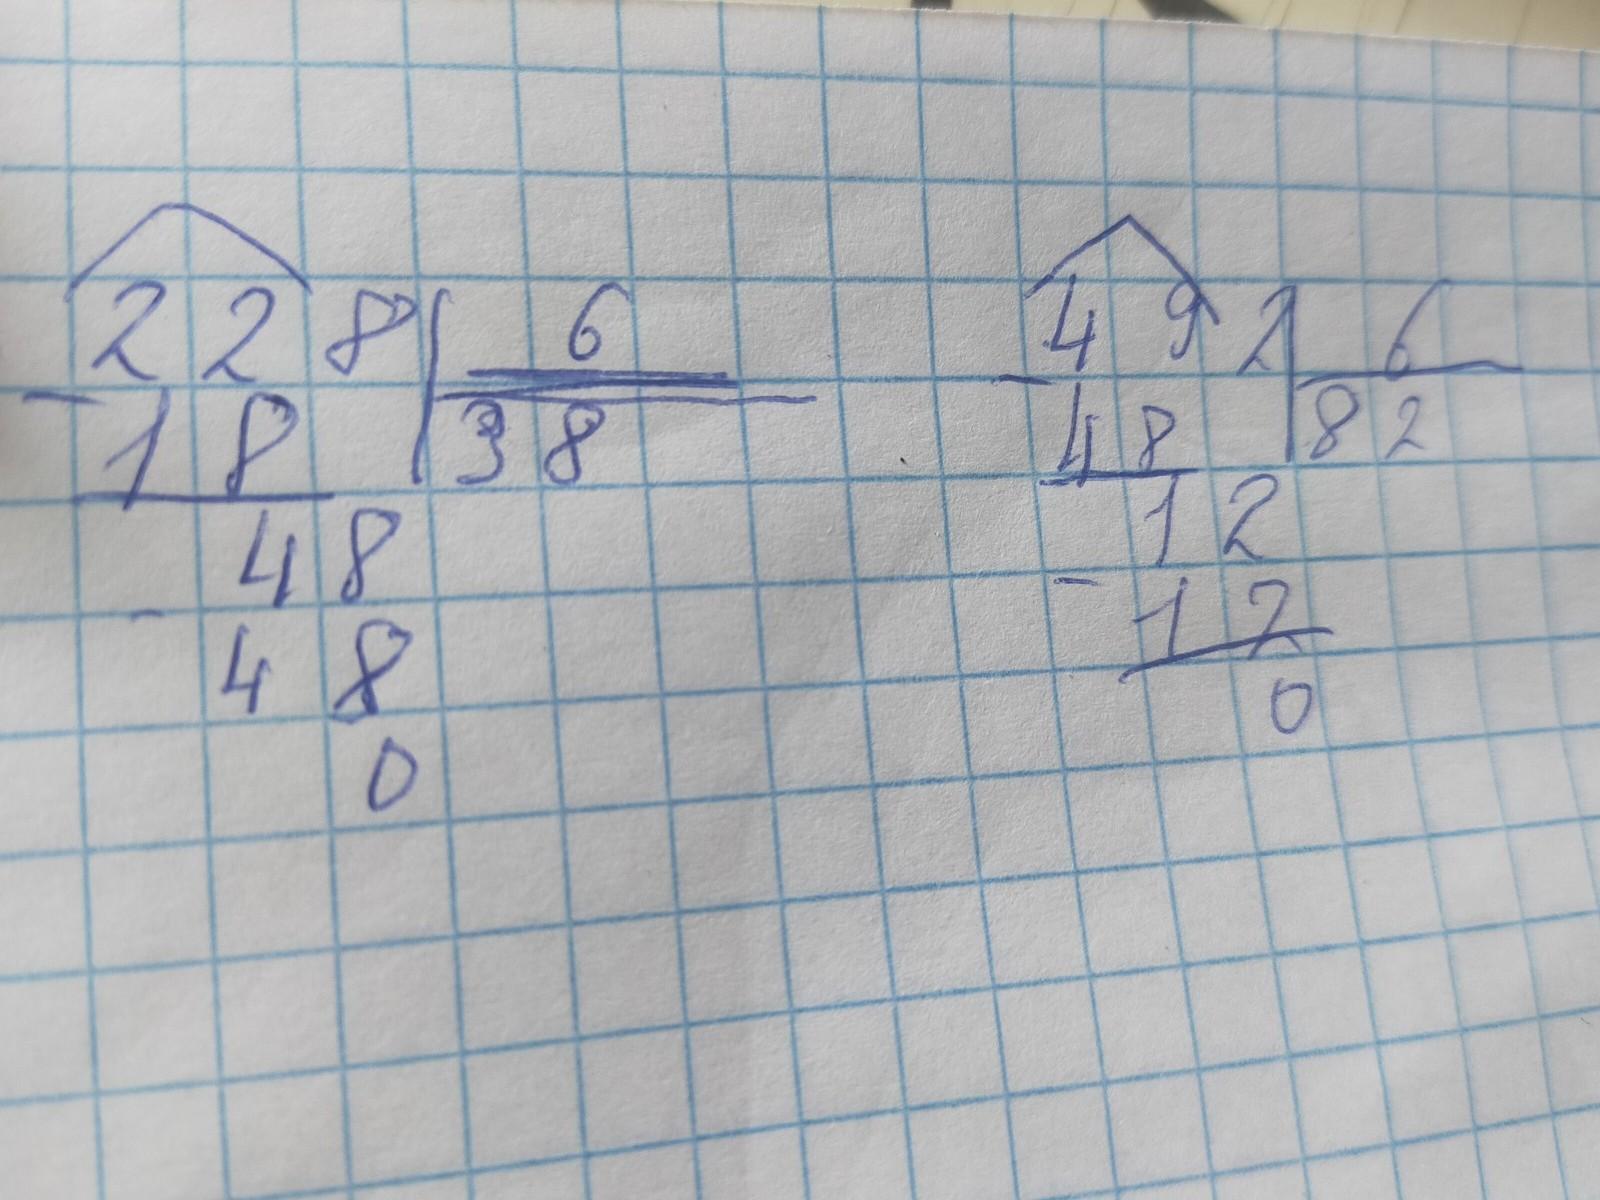 228 6
- 18 38
48
- 48
0
492 6
- 48 82
12
- 12
0